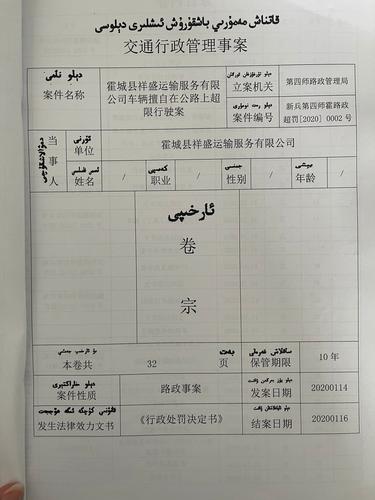 قاتناش مەمۇرىي باشقۇرۇش ئىشلىرى دېلوسى
交通行政管理事案
دېلو نامى
案件名称
霍城县祥盛运输服务有限
公司车辆擅自在公路上超
限行驶案
立案机关
第四师路政管理局
案件编号
新兵第四师霍路政
超罚[2020] 0002 号
当事人
ئورنى
单位
霍城县祥盛运输服务有限公司
姓名
/
كەسپى
职业
/
جىنسى
性别
/
يېشى
年龄
/
ئارخىپى
卷
宗
本卷共
32
بەت
页
ساقلاش مۇددىتى
保管期限
10 年
案件性质
路政事案
发案日期
20200114
发生法律效力文书
《行政处罚决定书》
结案日期
20200116